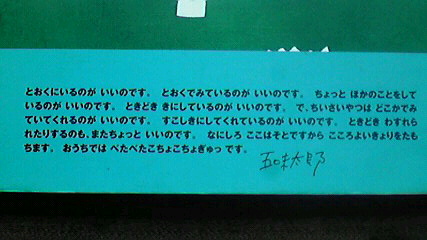 とおくにいるのが いいのです。 とおくでみているのが いいのです。 ちょっと ほかのことをして
いるのが いいのです。 ときどき きにしているのが いいのです。 で、ちいさいやつは どこかでみ
ていてくれるのが いいのです。 すこしきにしてくれているのが いいのです。 ときどき わすれら
れたりするのも、またちょっと いいのです。 なにしろ ここはそとですから こころよいきょりをたも
ちます。 おうちでは べたべたこちょこちょぎゅっ です。
五味太郎